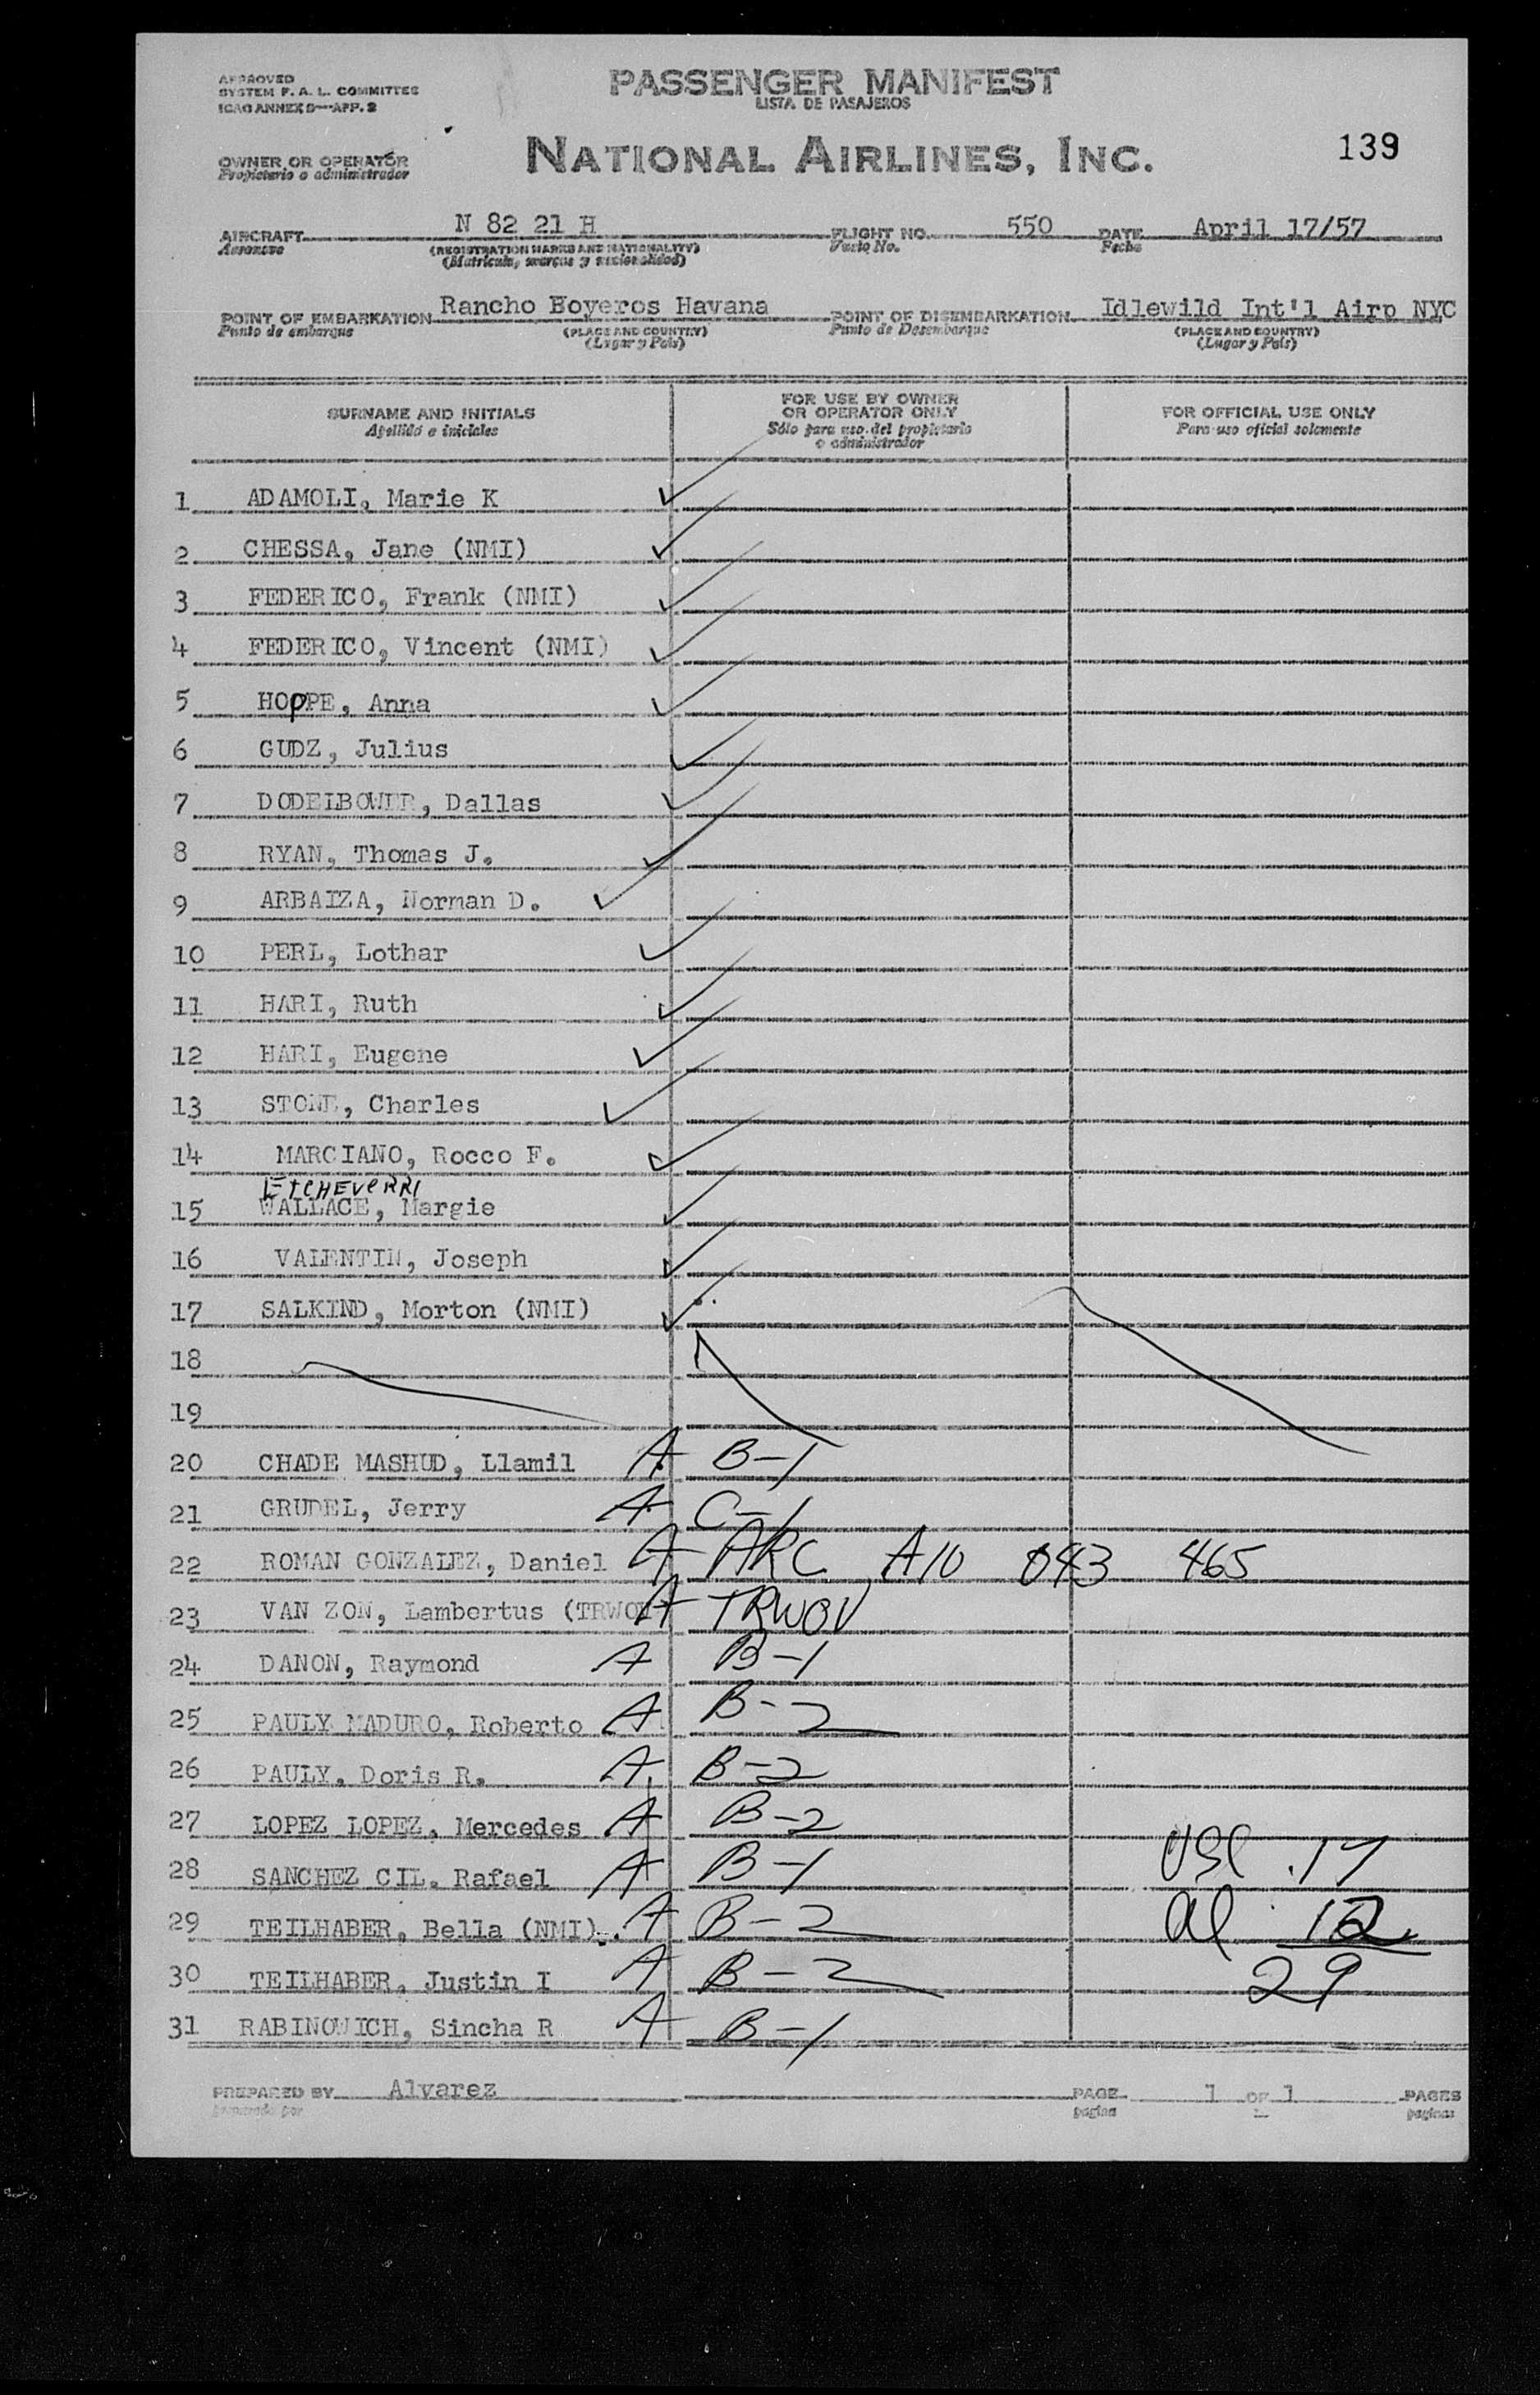 APPROVED
SYSTEM F. A. L. COMMITTEE
ICAO ANNEX 9—APP. 2
PASSENGER MANIFEST
LISTA DE PASAJEROS
OWNER OR OPERATOR
Propietario o administrador
NATIONAL AIRLINES, INC.
139
AIRCRAFT N 82 21 H FLIGHT NO. 550 DATE April 17/57
Aeronave (REGISTRATION MARKS AND NATIONALITY) Vuelo No. Fecha
(Matrícula, marcas y nacionalidad)
POINT OF EMBARKATION Rancho Boyeros Havana POINT OF DISEMBARKATION Idlewild Int'l Airp NYC
Punto de embarque (PLACE AND COUNTRY) Punto de Desembarque (PLACE AND COUNTRY)
(Lugar y País) (Lugar y País)
SURNAME AND INITIALS
Apellido e iniciales
FOR USE BY OWNER
OR OPERATOR ONLY
Sólo para uso del propietario
o administrador
FOR OFFICIAL USE ONLY
Para uso oficial solamente
1 ADAMOLI, Marie K
2 CHESSA, Jane (NMI)
3 FEDERICO, Frank (NMI)
4 FEDERICO, Vincent (NMI)
5 HOPPE, Anna
6 GUDZ, Julius
7 DODELBOWER, Dallas
8 RYAN, Thomas J.
9 ARBAIZA, Norman D.
10 PERL, Lothar
11 HARI, Ruth
12 HARI, Eugene
13 STONE, Charles
14 MARCIANO, Rocco F.
ETCHEVERRI
15 WALLACE, Margie
16 VALENTIN, Joseph
17 SALKIND, Morton (NMI)
18
19
20 CHADE MASHUD, Llamil A B-1
21 GRUDEL, Jerry A C-1
22 ROMAN GONZALEZ, Daniel A ARC A10 043 465
23 VAN ZON, Lambertus (TRWOV A TRWOV
24 DANON, Raymond A B-1
25 PAULY MADURO, Roberto A B-2
26 PAULY, Doris R. A B-2
27 LOPEZ LOPEZ, Mercedes A B-2
28 SANCHEZ CIL, Rafael A B-1 USC 17
29 TEILHABER, Bella (NMI). A B-2 al 12
30 TEILHABER, Justin I A B-2 29
31 RABINOWICH, Sincha R A B-1
PREPARED BY Alvarez PAGE 1 OF 1 PAGES
preparado por pagina paginas